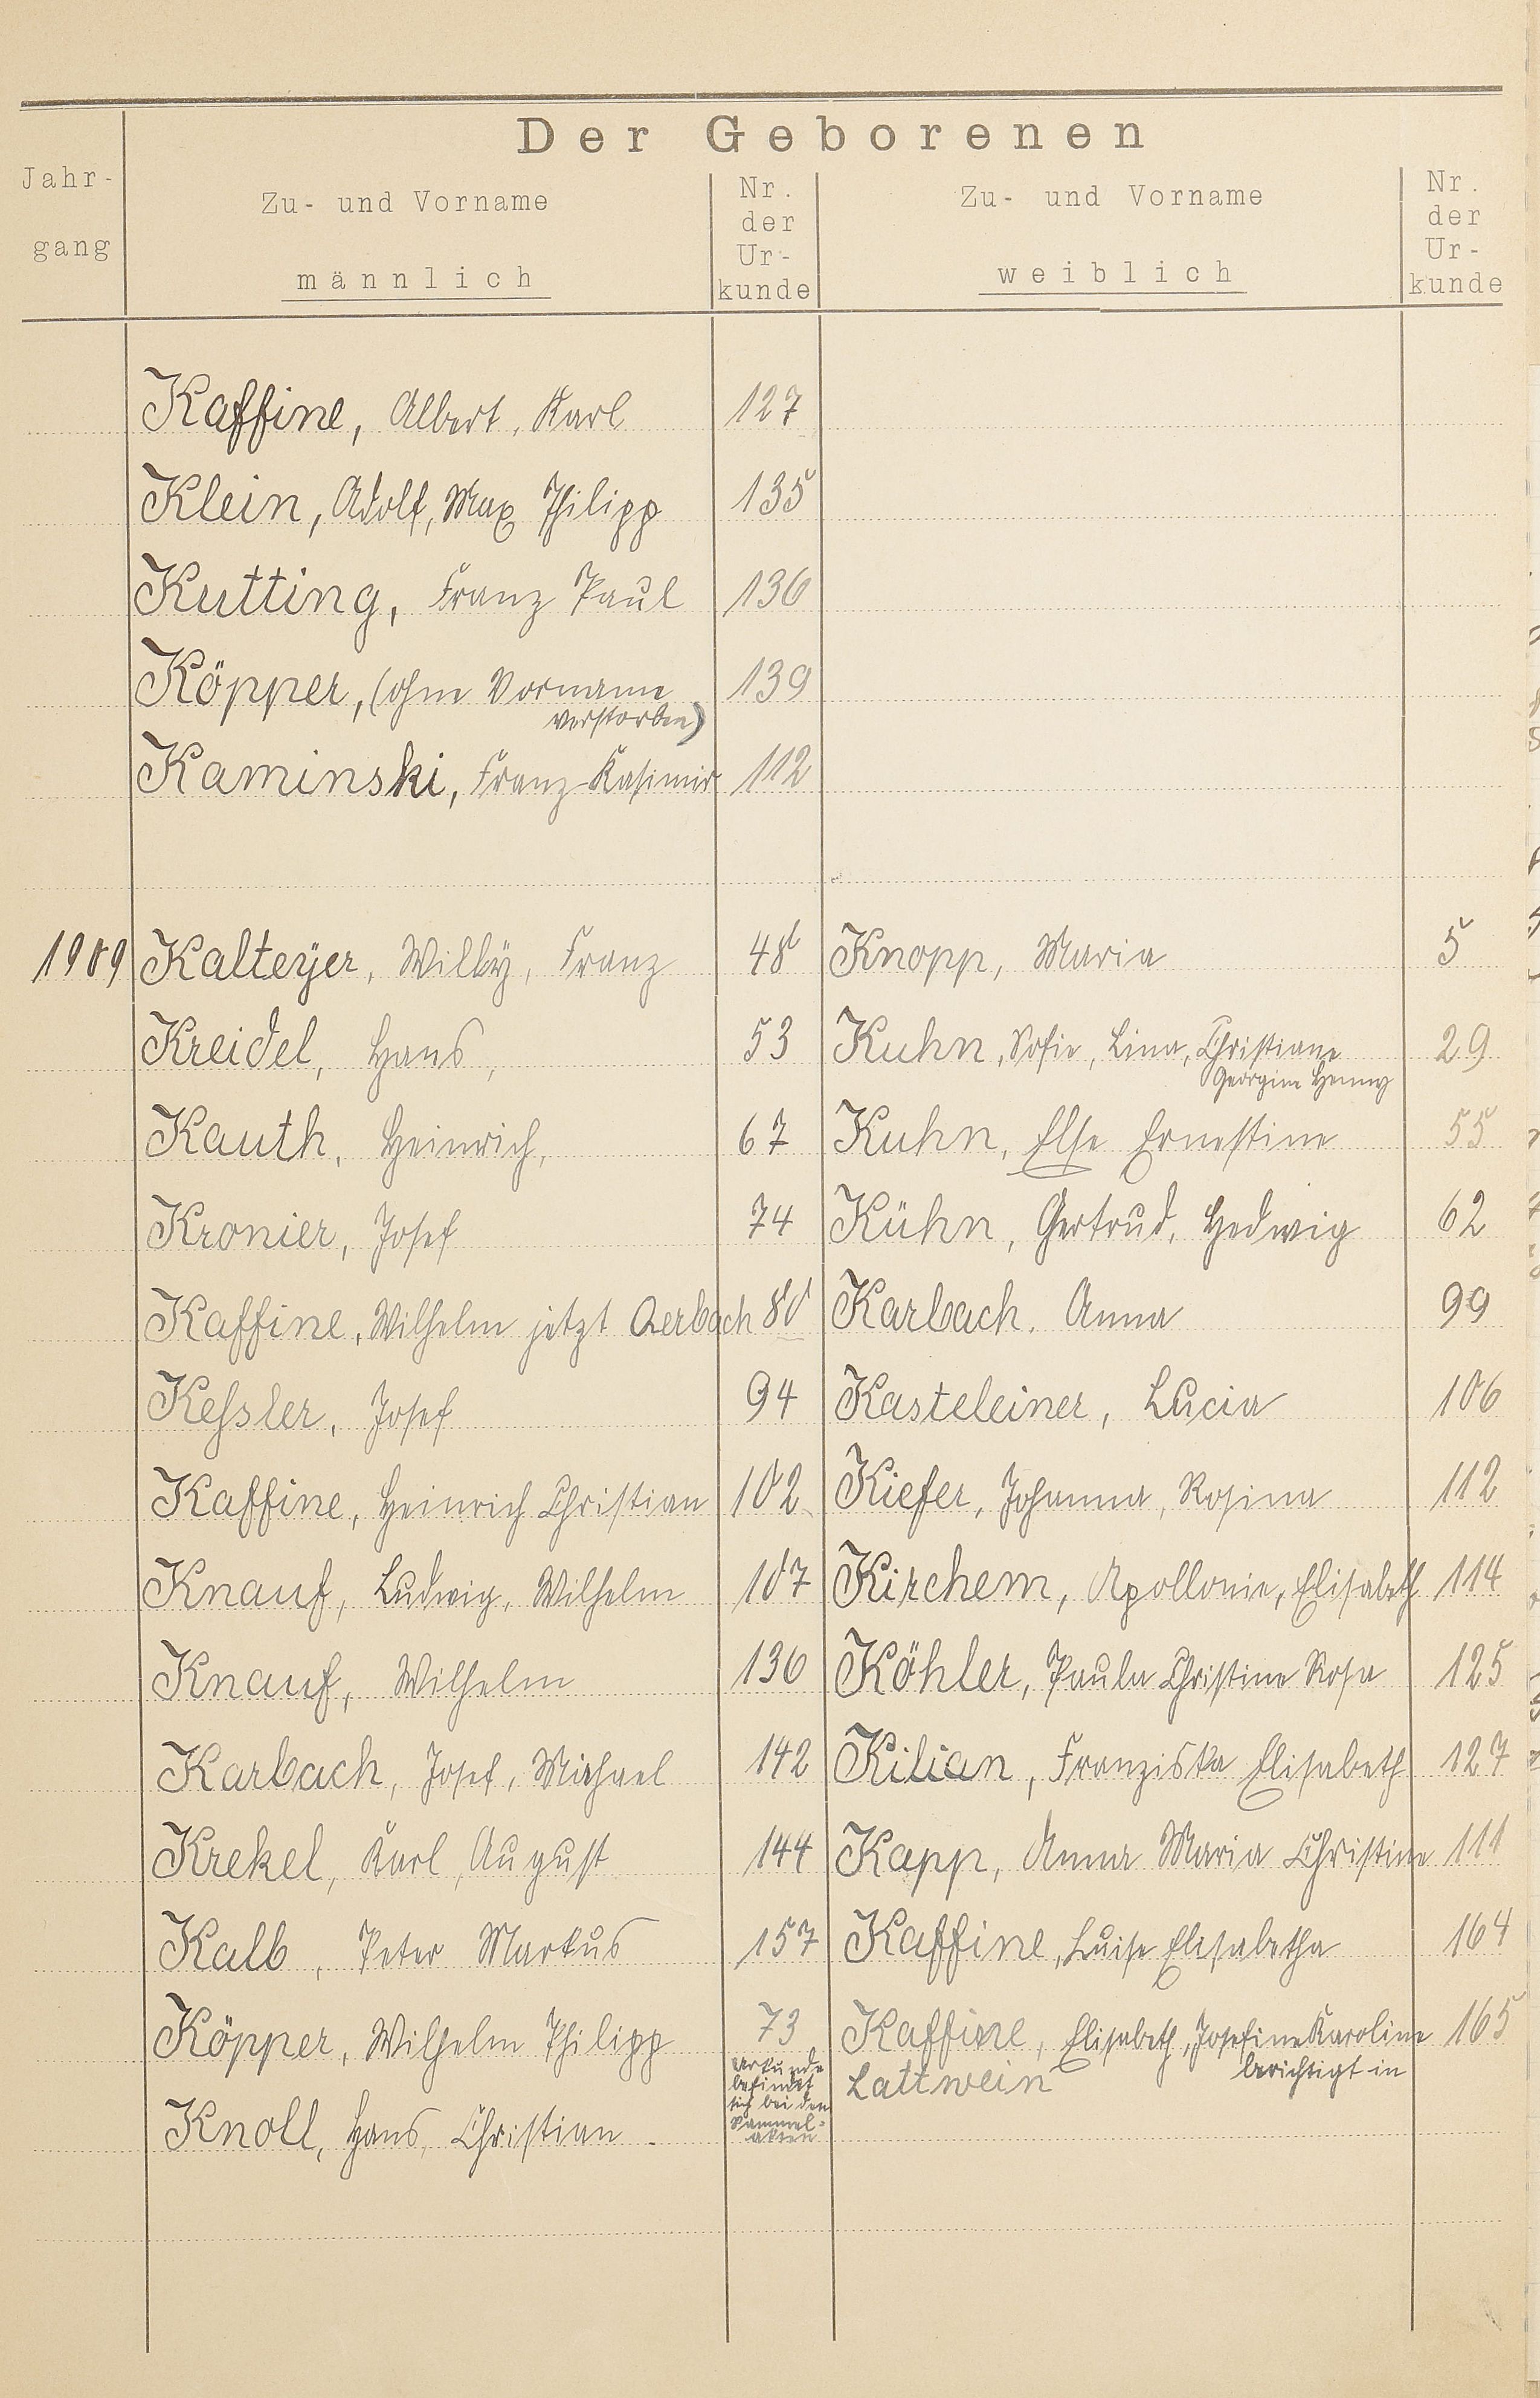 Der Geborenen
Jahr-
gang
Zu- und Vorname
männlich
Nr.
der
Ur-
kunde
Zu- und Vorname
weiblich
Nr.
der
Ur-
kunde
Kaffine, Albert, Karl 127
Klein, Adolf, Max Philipp 135
Kutting, Franz Paul 136
Köpper, (ohne Vorname 139
verstorben)
Kaminski, Franz-Kasimir 112
1909 Kalteyer, Willy, Franz 48 Knopp, Maria 5
Kreidel, Hans, 53 Kuhn, Sofie, Lina, Christiane 29
Georgine Henny
Kauth, Heinrich, 67 Kuhn, Else Ernestine 55
Kronier, Josef 74 Kühn, Gertrud, Hedwig 62
Kaffine, Wilhelm jetzt Aerbach 80 Karbach, Anna 99
Keßler, Josef 94 Kasteleiner, Lucia 106
Kaffine, Heinrich Christian 102 Kiefer, Johanna, Rosina 112
Knauf, Ludwig, Wilhelm 107 Kirchem, Apollonie, Elisabeth 114
Knauf, Wilhelm 136 Köhler, Paula Christine Rosa 125
Karbach, Josef, Michael 142 Kilian, Franziska Elisabeth 127
Krekel, Karl, August 144 Kapp, Anna Maria Christine 111
Kalb, Peter Markus 157 Kaffine, Luise Elisabetha 164
Köpper, Wilhelm Philipp 73 Kaffine, Elisabeth, Josefine Karoline 165
berichtigt in
Lattwein
Knoll, Hans, Christian
Urkunde
befindet
sich bei den
Sammel-
akten